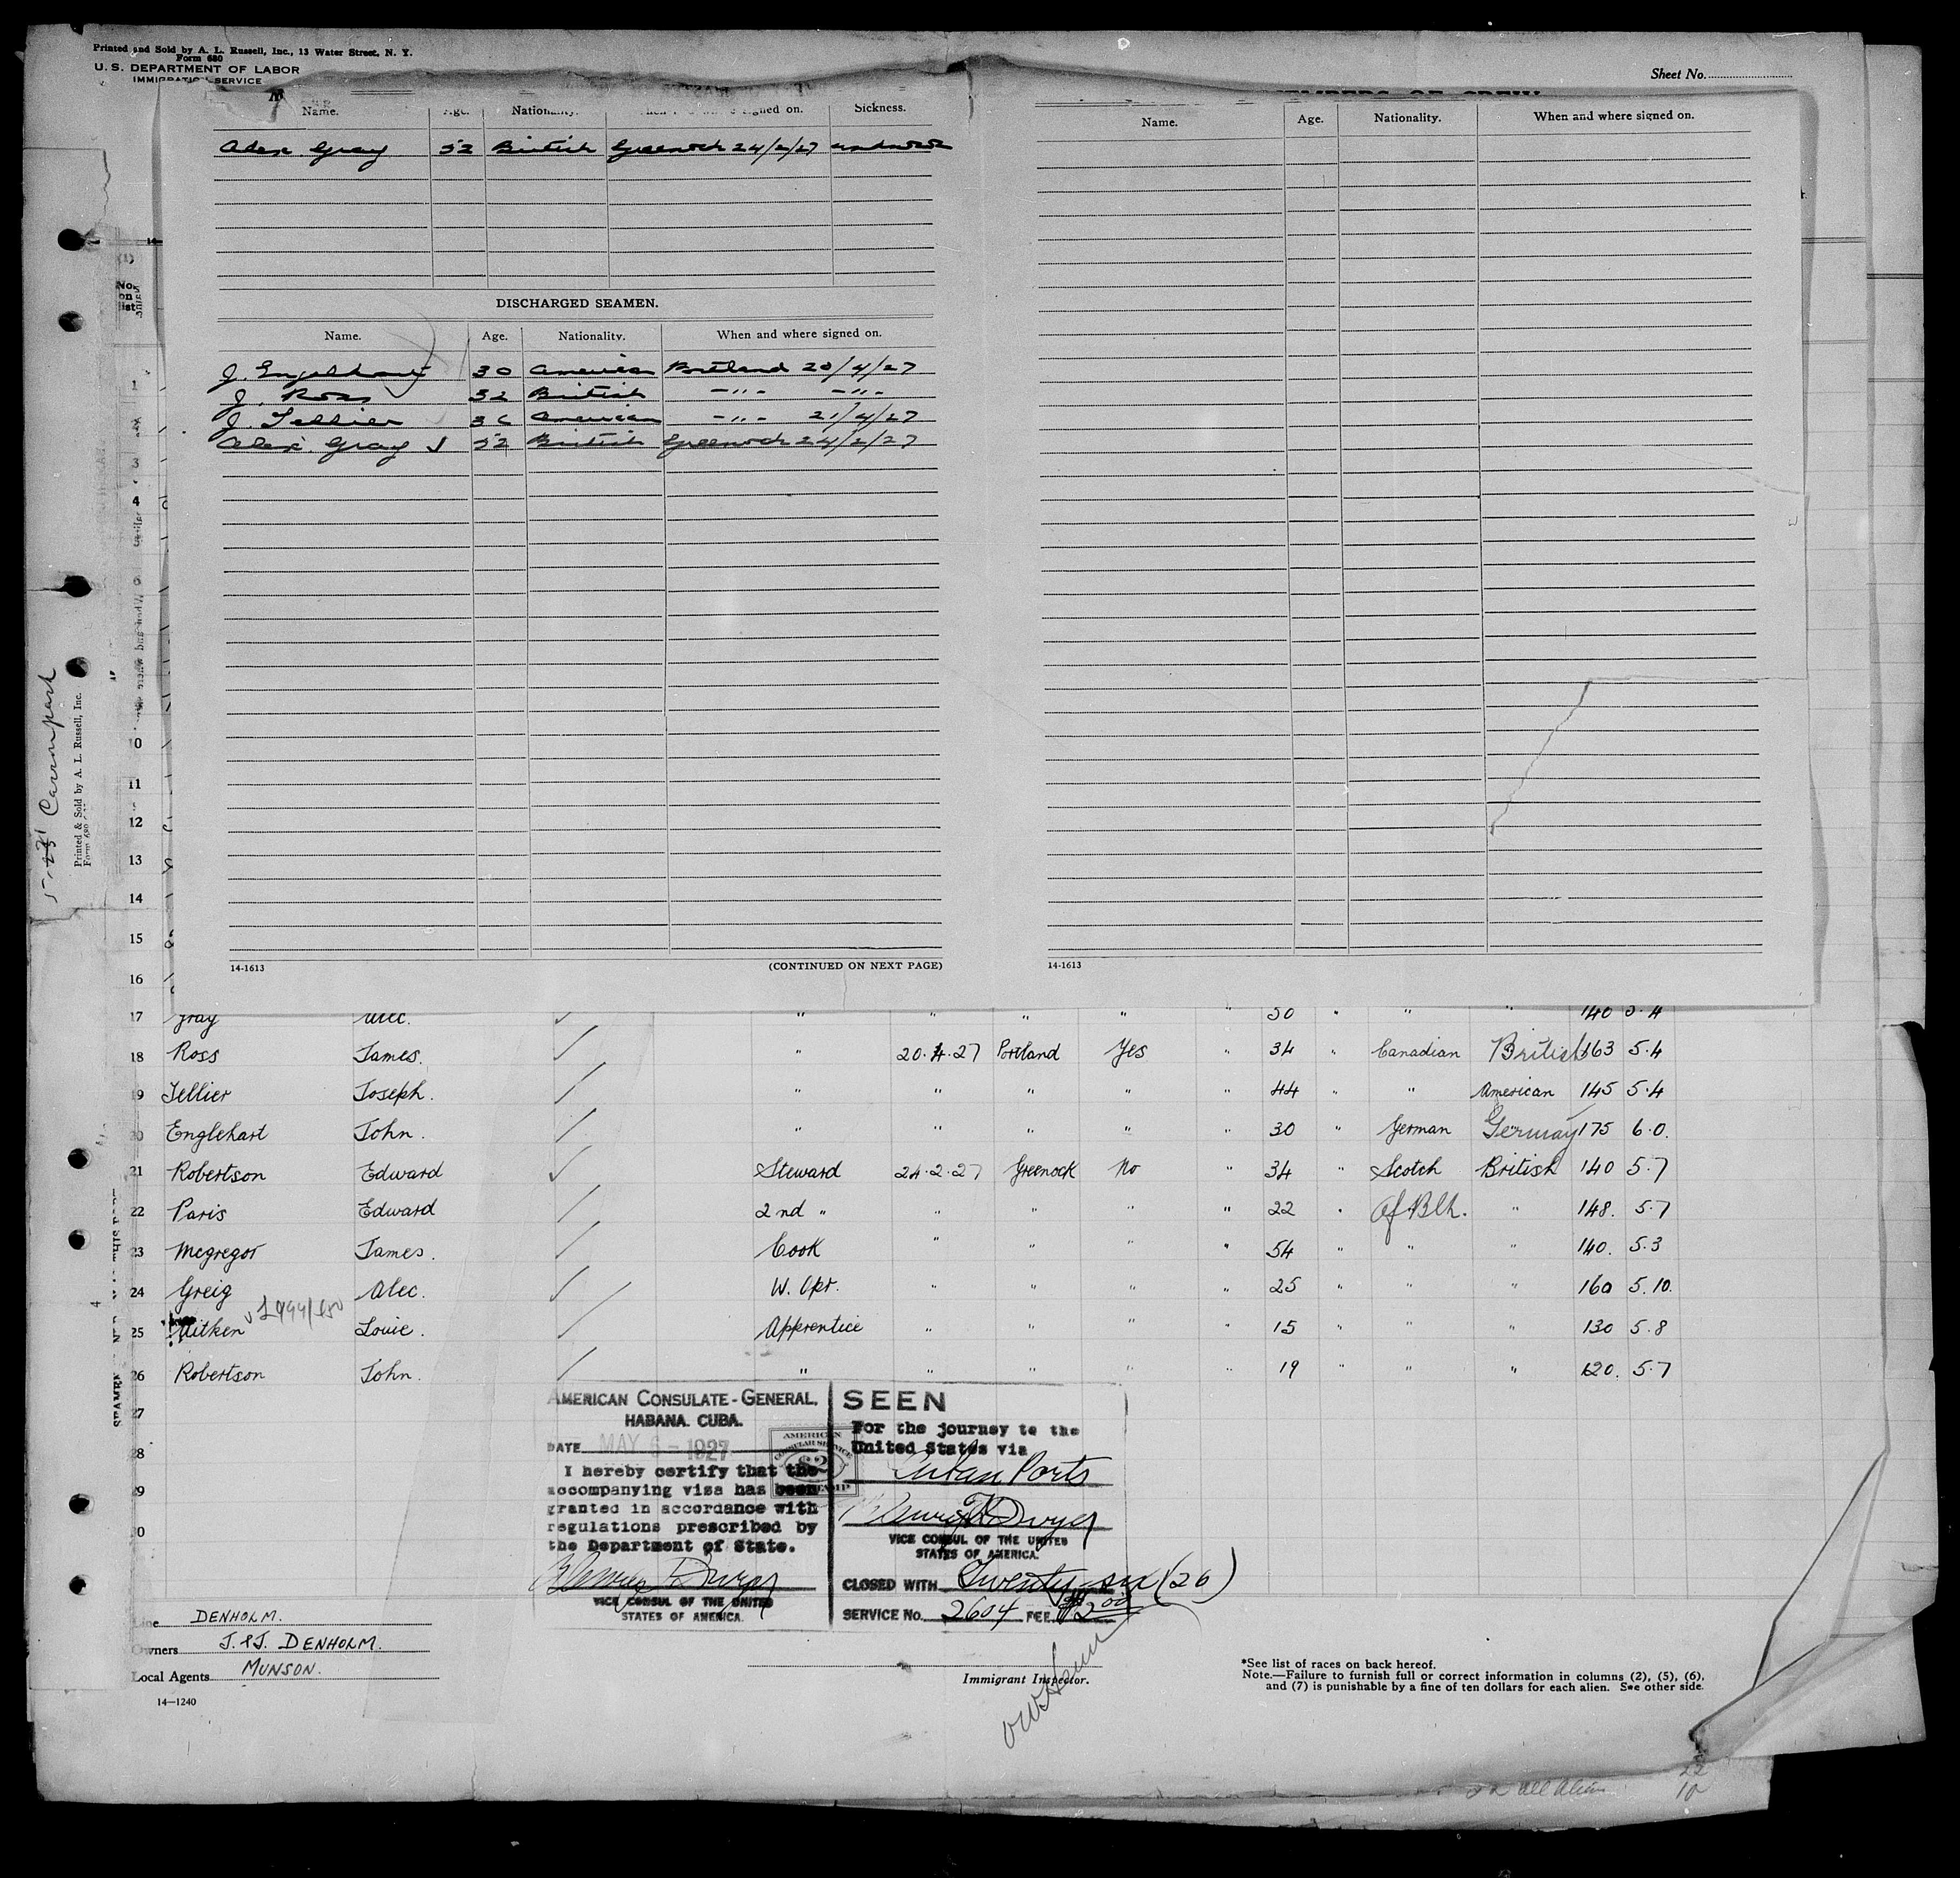 Printed and Sold by A. L. Russell, Inc., 13 Water Street, N. Y.
Form 680
U. S. DEPARTMENT OF LABOR
IMMIGRATION SERVICE
Sheet No.
Name. Age. Nationality. signed on. Sickness.
Alex Gray 52 British Greenock 24/2/27
DISCHARGED SEAMEN.
Name. Age. Nationality. When and where signed on.
J. Engelhart 30 American Portland 20/4/27
J. Ross 32 British -"- -"-
J. Tellier 36 American -"- 21/4/27
Alex. Gray 52 British Greenock 24/2/27
14-1613 (CONTINUED ON NEXT PAGE)
Name. Age. Nationality. When and where signed on.
14-1613
No. on list
1
3
4
10
11
12
13
14
15
16
Printed & Sold by A. L. Russell, Inc.
17 Gray Alec. " " " " " 50 " " " 140 5.4
18 Ross James. " 20.4.27 Portland Yes " 34 " Canadian British 163 5.4
19 Tellier Joseph. " " " " " 44 " " American 145 5.4
20 Englehart John. " " " " " 30 " German Germany 175 6.0.
21 Robertson Edward Steward 24.2.27 Greenock No " 34 " Scotch British 140 5.7
22 Paris Edward 2nd " " " " " 22 " Af Blk. " 148. 5.7
23 Mcgregor James. Cook " " " " 54 " " " 140. 5.3
24 Greig Alec. W. Opr. " " " " 25 " " " 160 5.10.
25 Aitken Louie. Apprentice " " " " 15 " " " 130 5.8
26 Robertson John. " " " " " 19 " " " 120. 5.7
27
28
29
30
AMERICAN CONSULATE-GENERAL,
HABANA, CUBA.
DATE MAY 6 - 1927
I hereby certify that the
accompanying visa has been
granted in accordance with
regulations prescribed by
the Department of State.
VICE CONSUL OF THE UNITED
STATES OF AMERICA.
SEEN
For the journey to the
United States via
Cuban Ports
VICE CONSUL OF THE UNITED
STATES OF AMERICA.
CLOSED WITH Twenty-six (26)
SERVICE No. 2604 FEE $2.00
Line DENHOLM.
Owners J. & J. DENHOLM.
Local Agents MUNSON.
14—1240
Immigrant Inspector.
*See list of races on back hereof.
Note.—Failure to furnish full or correct information in columns (2), (5), (6),
and (7) is punishable by a fine of ten dollars for each alien. See other side.
22
10